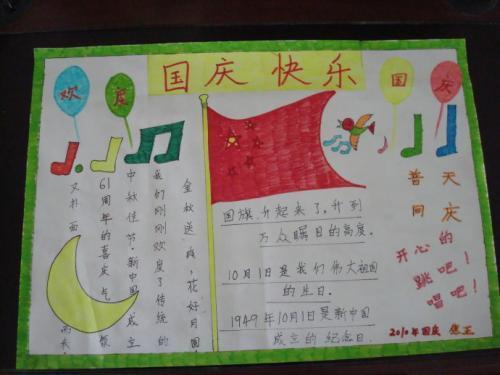 国庆 快乐
欢度
国庆
金秋送爽，花好月圆
我们刚刚欢度了传统的
中秋佳节。新中国成立
61周年的喜庆气氛
又扑面而来
国旗升起来了，升到
万众瞩目的高度。
10月1日是我们伟大祖国
的生日。
1949年10月1日是新中国
成立的纪念日。
普天
同庆
开心的
跳吧！
唱吧！
2010年国庆